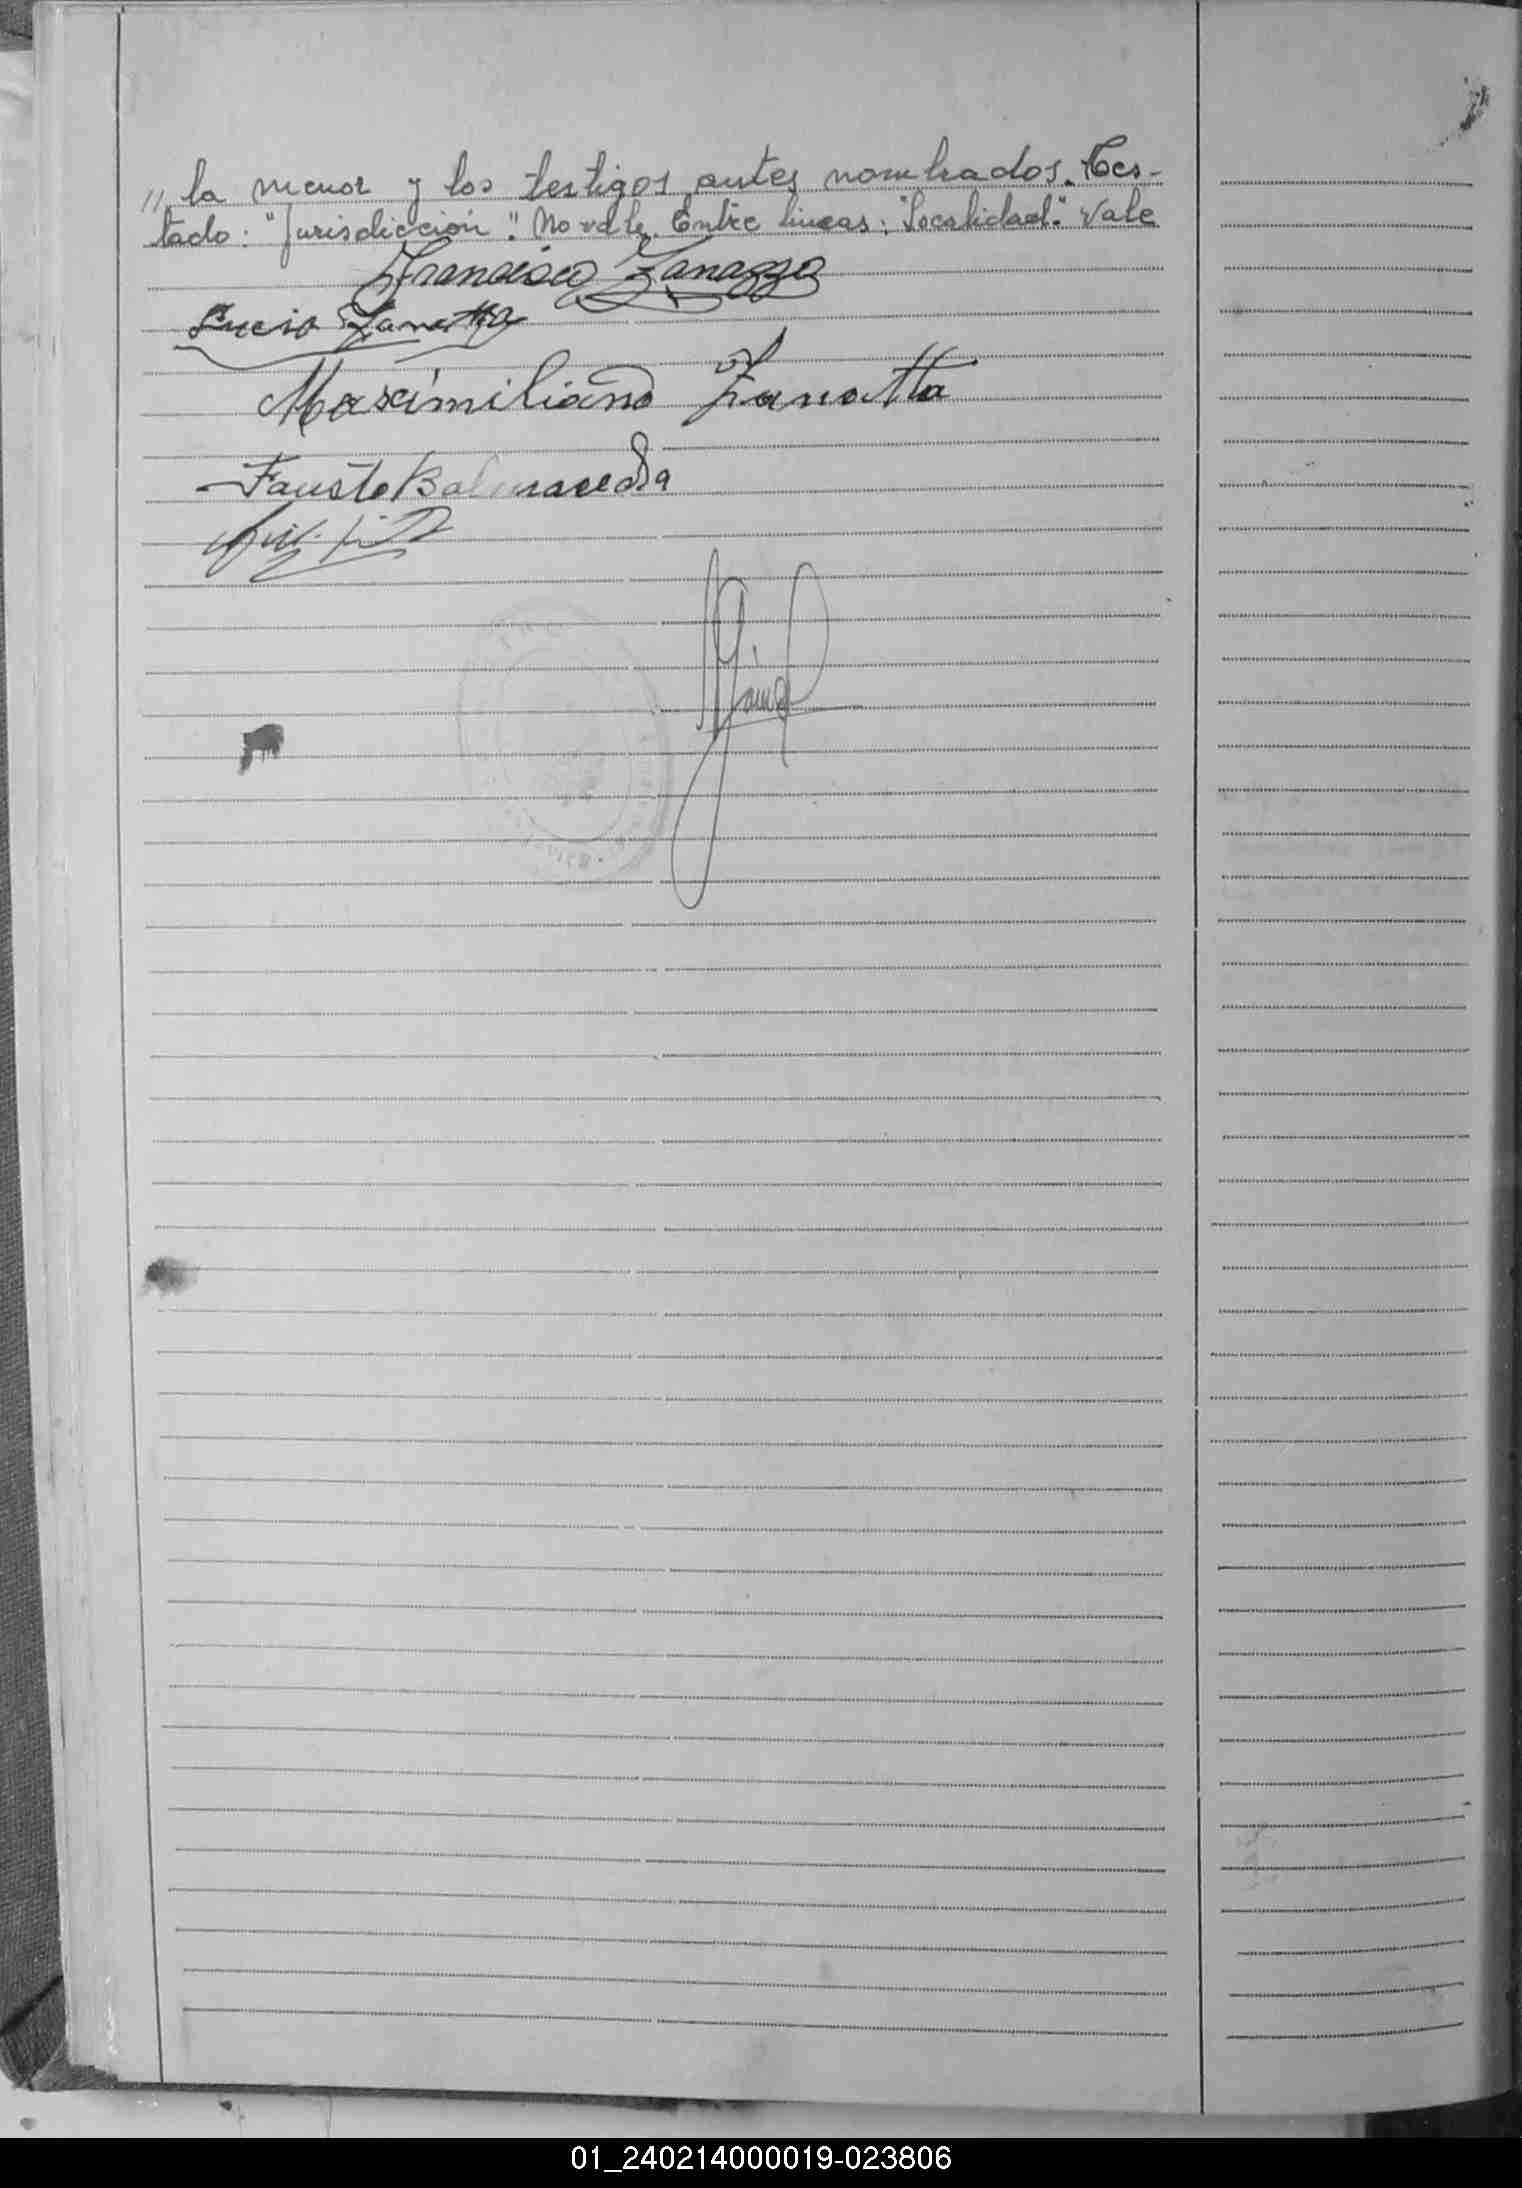 // la menor y los testigos antes nombrados. Tes-
tado: "Jurisdicción". No vale. Entre lineas: "Localidad". Vale
Francisco Zanazzo
Lucio Zanotta
Maximiliano Zanotta
Fausto Balmaceda
01_240214000019-023806